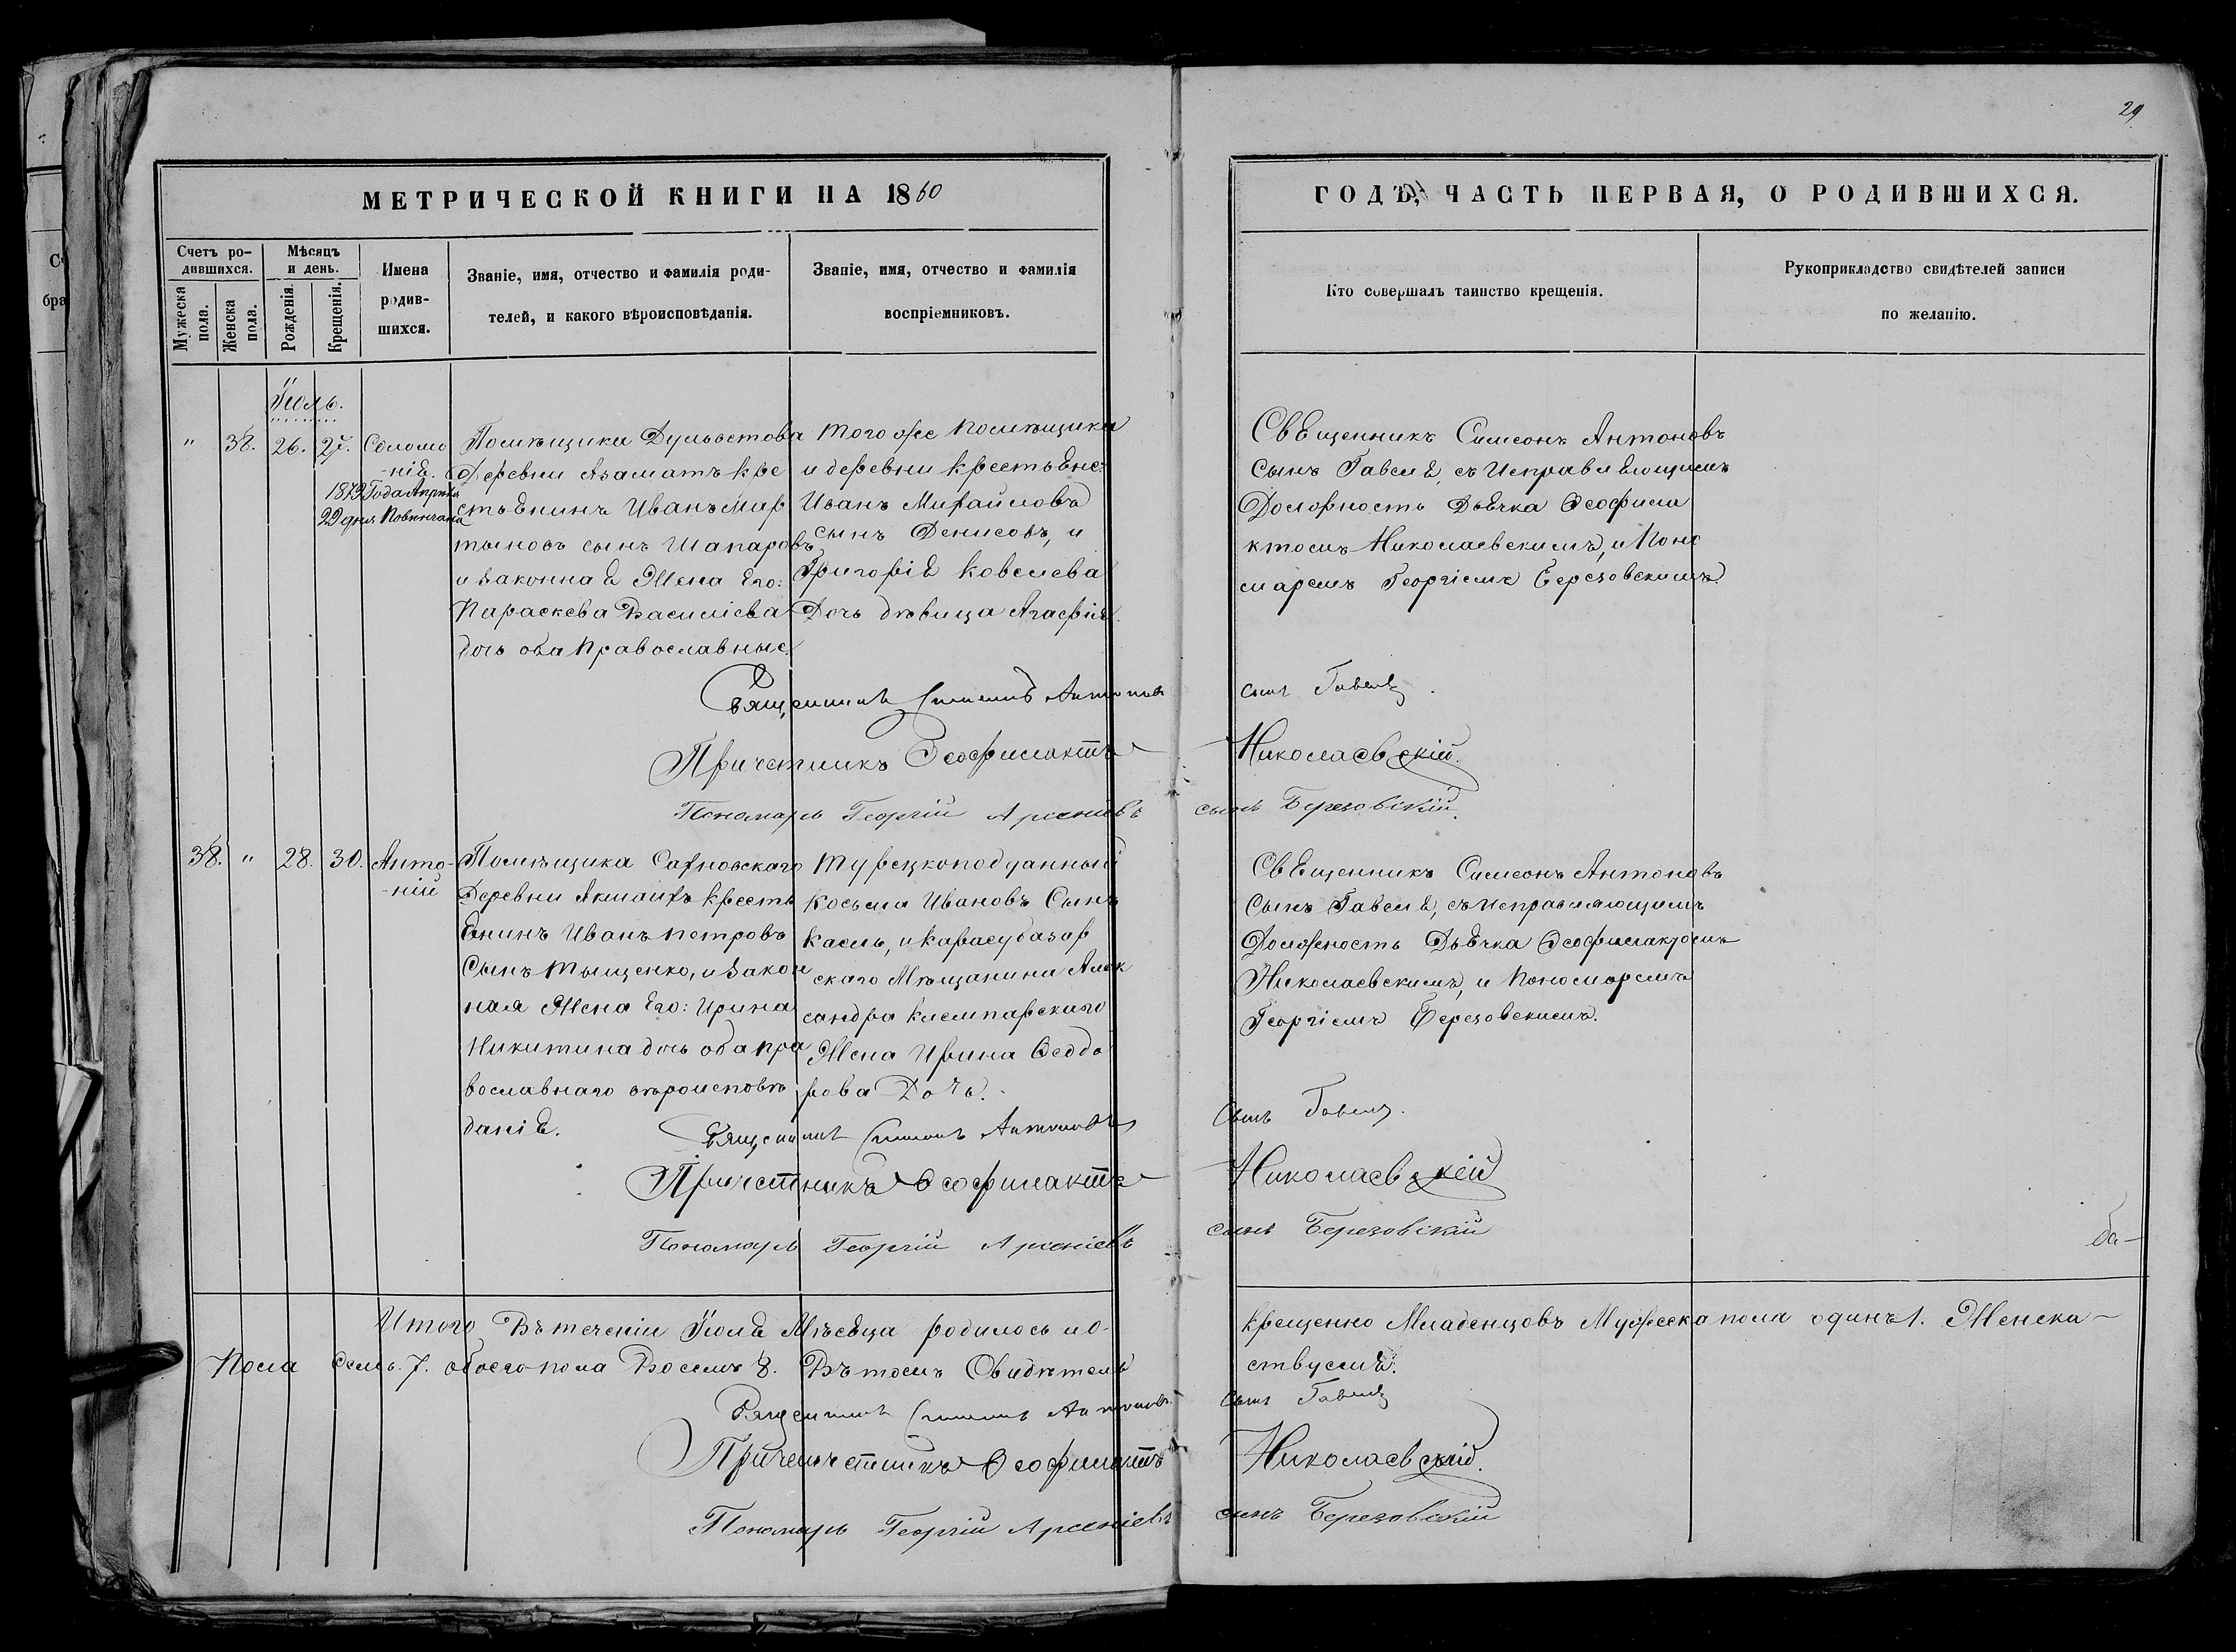 29
МЕТРИЧЕСКОЙ КНИГИ НА 1860
ГОДЪ, ЧАСТЬ ПЕРВАЯ, О РОДИВШИХСЯ.
Счетъ ро-
дившихся.
Мужеска
пола.
Женска
пола.
Мѣсяцъ
и день.
Рожденія.
Крещенія.
Имена
родив-
шихся.
Званіе, имя, отчество и фамилія роди-
телей, и какого вѣроисповѣданія.
Званіе, имя, отчество и фамилія
воспріемниковъ.
Кто совершалъ таинство крещенія.
Рукоприкладство свидѣтелей записи
по желанію.
Іюль.
" 38. 26. 27. Соломо
-нія.
1879 Года Апрѣля
22 дня Повѣнчана
Помѣщика
Деревни Азаматъ кре
стьянинъ Иванъ Мар
тыновъ сынъ Шапаровъ
и законная Жена Его:
Параскева Василіева
дочь оба Православные
того же Помѣщика
и деревни крестьяне
Иванъ Михайловъ
сынъ Денисовъ, и
Григорія Ковелева
Дочь дѣвица Агафія.
Священникъ Симеонъ Антоновъ
Сынъ Гавеля, съ Исправляющимъ
Должность Дьячка Ѳеофила
ктомъ Николаевскимъ, и Поно
маремъ Георгіемъ Березовскимъ.
Священникъ Симеонъ Антоновъ сынъ Гавеля.
Причетникъ Ѳеофилактъ Николаевскій.
Пономарь Георгій Арсеніевъ сынъ Березовскій.
38. " 28. 30. Анто-
-ній
Помѣщика
Деревни Акманъ кресть
янинъ Иванъ Петровъ
Сынъ Тыщенко, и закон
ная Жена Его: Ирина
Никитина дочь оба пра
вославнаго вѣроисповѣ
данія.
Турецкоподданный
Косьма Ивановъ Сынъ
и карасубазар
скаго Мѣщанина Алек
сандра
Жена Ирина Ѳеодо
рова Дочь.
Священникъ Симеонъ Антоновъ
Сынъ Гавеля, съ исправляющимъ
Должность Дьячка Ѳеофилактомъ
Николаевскимъ, и Пономаремъ
Георгіемъ Березовскимъ.
Священникъ Симеонъ Антоновъ Сынъ Гавеля.
Причетникъ Ѳеофилактъ Николаевскій
Пономарь Георгій Арсеніевъ сынъ Березовскій
Итого Въ теченіи Іюля Мѣсяца родилось и о-
крещенно Младенцовъ Мужеска пола одинъ 1. Женска-
Пола Семь. 7. обоего пола Восемь 8. Въ томъ Свидѣтель
ствуемъ.
Священникъ Симеонъ Антоновъ Сынъ Гавеля
Николаевскій.
Пономарь Георгій Арсеніевъ сынъ Березовскій